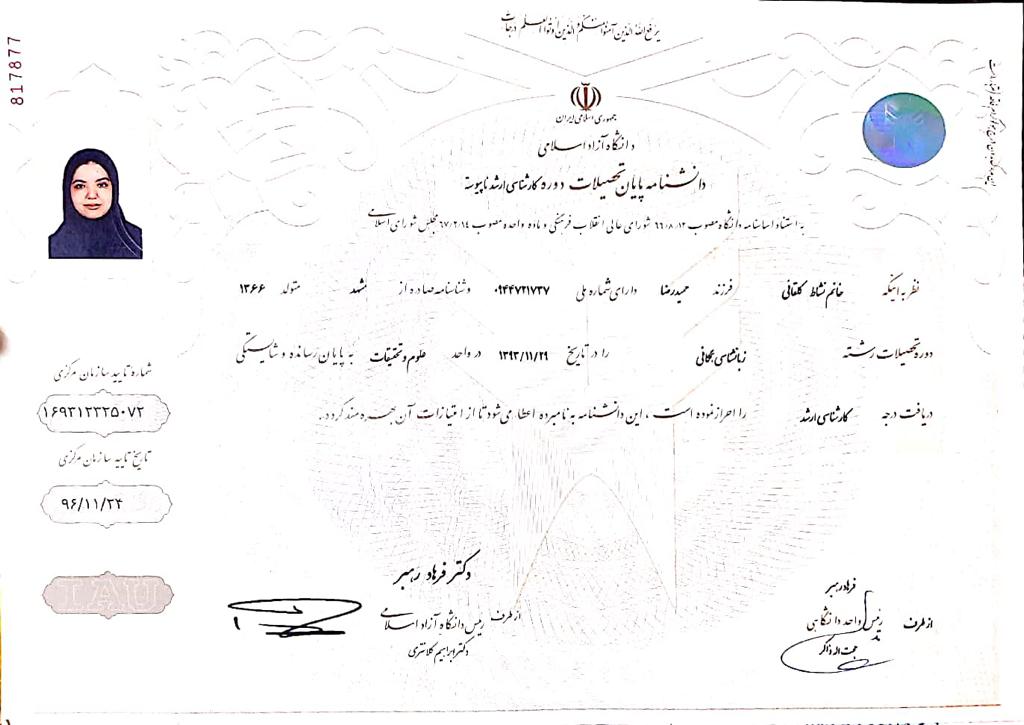 یرفع الله الذین آمنوا منکم و الذین اوتوا العلم درجات
جمهوری اسلامی ایران
دانشگاه آزاد اسلامی
دانشنامه پایان تحصیلات دوره کارشناسی ارشد ناپیوسته
به استناد اساسنامه دانشگاه مصوب ۶۶/۰۸/۱۲ شورای عالی انقلاب فرهنگی و ماده واحده مصوب ۶۷/۲/۱۴ مجلس شورای اسلامی
نظر به اینکه خانم نشاط کلقانی فرزند حمیدرضا دارای شماره ملی ۰۹۴۴۷۲۱۷۳۷ و شناسنامه صادره از مشهد متولد ۱۳۶۶
دوره تحصیلات رشته زبانشناسی همگانی را در تاریخ ۱۳۹۳/۱۱/۲۹ در واحد علوم و تحقیقات به پایان رسانده و شایستگی
دریافت درجه کارشناسی ارشد را احراز نموده است ، این دانشنامه به نامبرده اعطا می شود تا از امتیازات آن بهره مند گردد .
817877
شماره تایید سازمان مرکزی
۱۶۹۳۱۲۳۲۵۰۷۲
تاریخ تایید سازمان مرکزی
۹۶/۱۱/۲۴
IAU
فرهاد رهبر
از طرف رئیس واحد دانشگاهی
حجت اله ذاکر
دکتر فرهاد رهبر
از طرف رئیس دانشگاه آزاد اسلامی
دکتر ابراهیم کلانتری